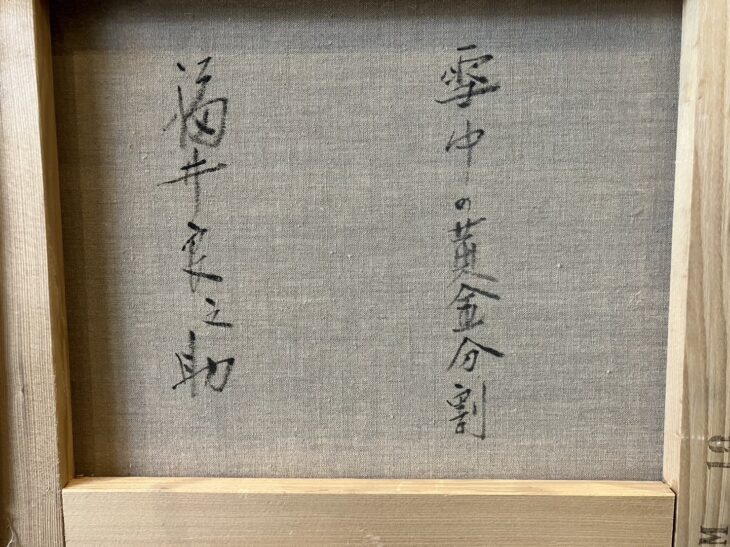 雪中の黄金分割
福井良之助
M 10